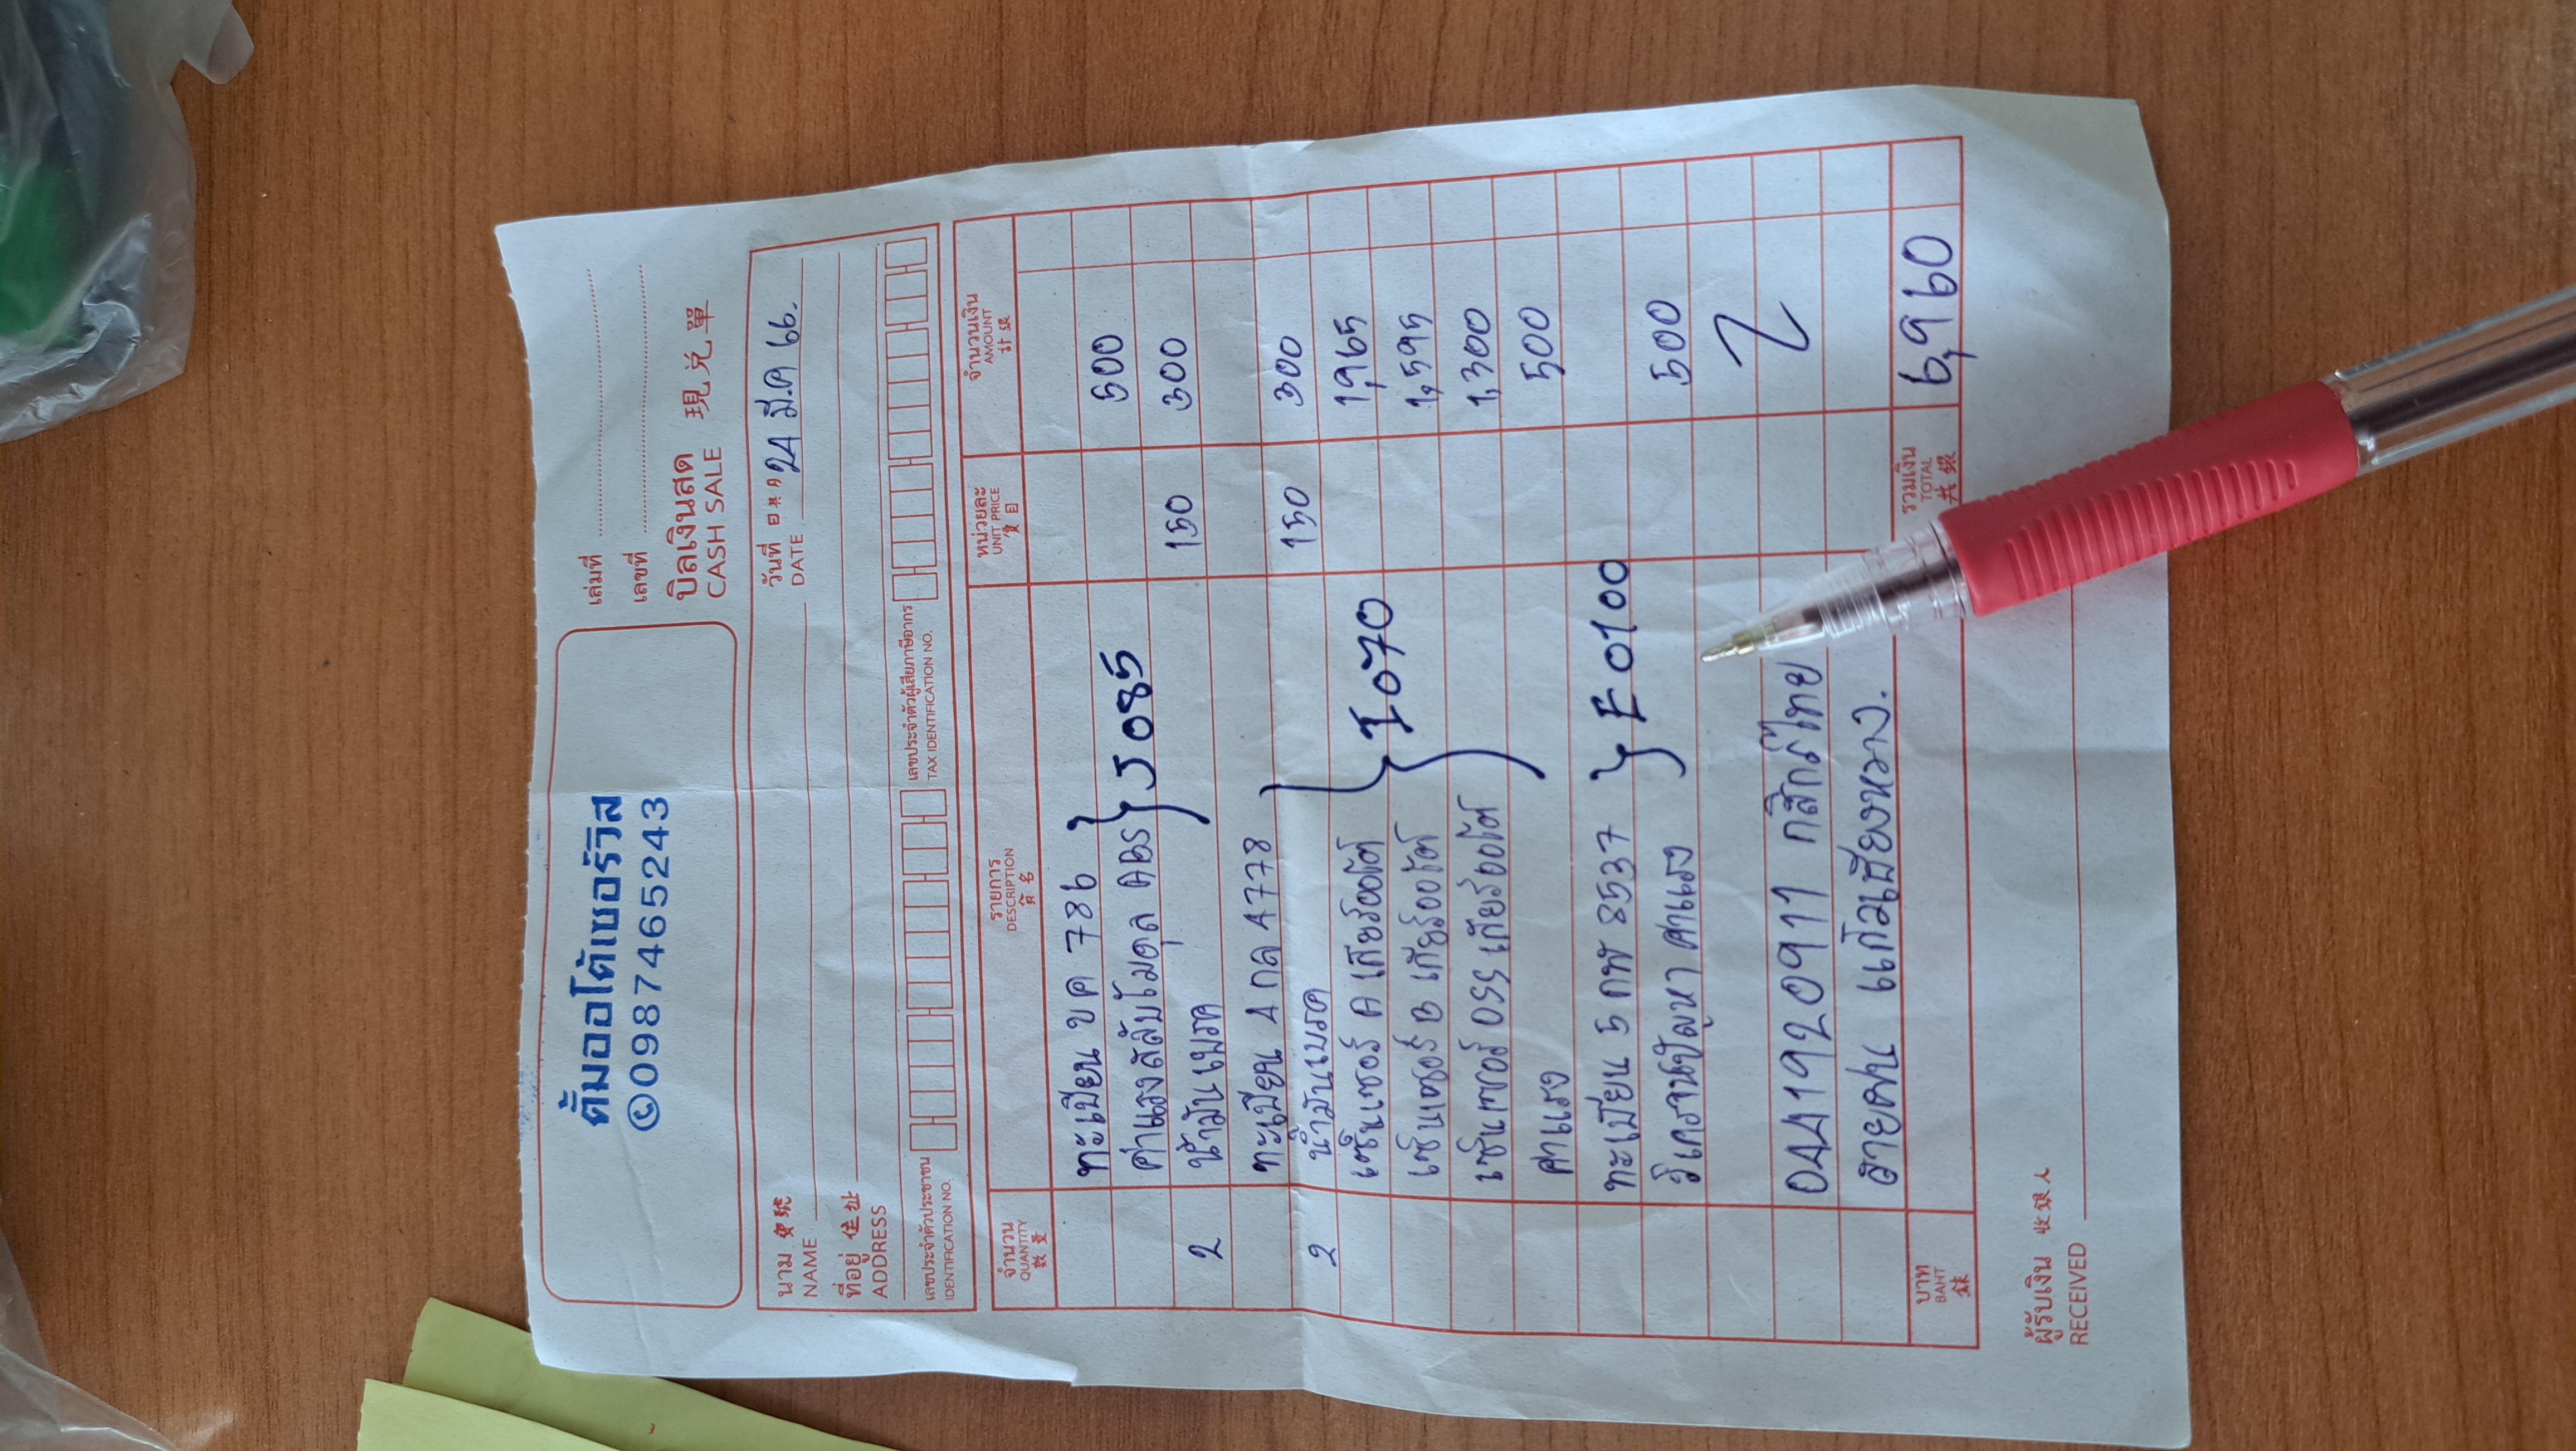 ตั้มออโต้เซอร์วิส
✆0987465243
เล่มที่
เลขที่
บิลเงินสด 現兌單
CASH SALE
นาม 寶號
NAME
วันที่ 日期 24 มี.ค 66.
DATE
ที่อยู่ 住址
ADDRESS
เลขประจำตัวประชาชน
IDENTIFICATION NO.
เลขประจำตัวผู้เสียภาษีอากร
TAX IDENTIFICATION NO.
จำนวน รายการ หน่วยละ จำนวนเงิน
QUANTITY DESCRIPTION UNIT PRICE AMOUNT
數量 貨名 價目 計銀
ทะเบียน ขค 786 500
ค่าแรงสลับโมดุล ABS } J085
2 น้ำมันเบรค 150 300
ทะเบียน 4 กล 4778
2 น้ำมันเบรค 150 300
เซ็นเซอร์ A เกียร์ออโต้ 1,965
เซ็นเซอร์ B เกียร์ออโต้ } I070 1,595
เซ็นเซอร์ OSS เกียร์ออโต้ 1,300
ค่าแรง 500
ทะเบียน 5 กฬ 8537
วิเคราะห์ปัญหา ค่าแรง } E0100 500
0441920911 กสิกรไทย
สายฝน แก้วเมืองหวาง.
บาท รวมเงิน 6,960
BAHT TOTAL
銖 共銀
ผู้รับเงิน 收銀人
RECEIVED